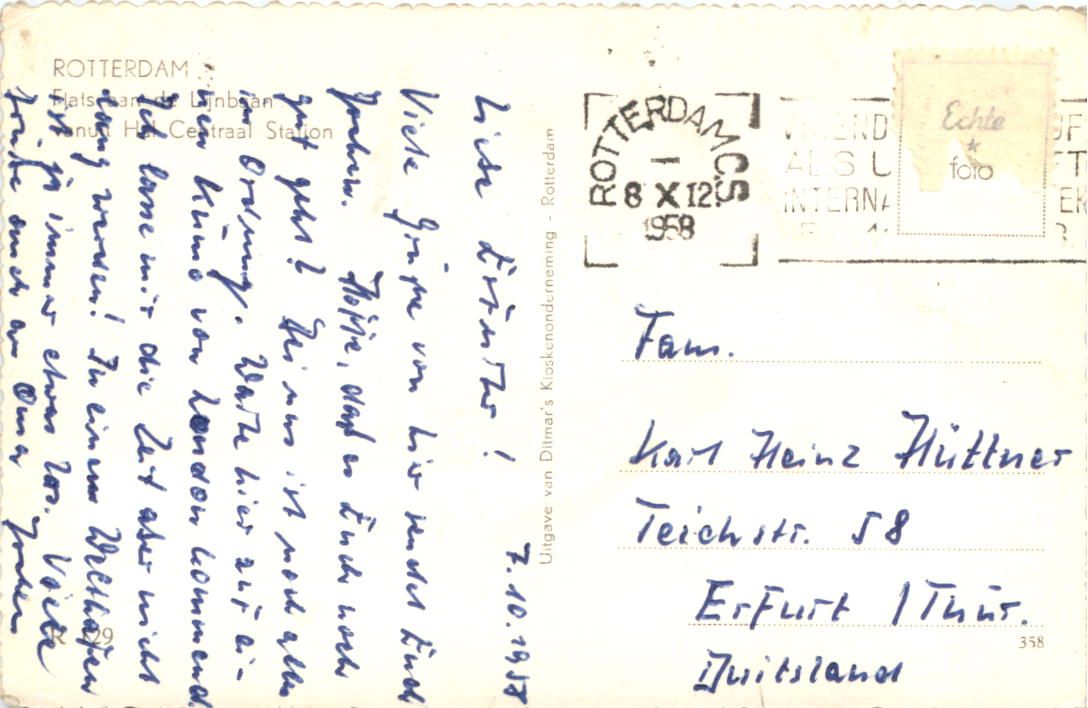 ROTTERDAM
Flats aan de Lijnbaan
vanuit Hal Centraal Station
7.10.1958
Liebe Erfurter!
Viele Grüße von hier sendet Euch
Jochen. Hoffe, daß es Euch noch
gut geht? Bei uns ist noch alles
in Ordnung. Warte hier auf ei-
nen Kümo von London kommend.
Ich lasse mir die Zeit aber nicht
lang werden! In einem Welthafen
ist ja immer etwas los. Viele
Grüße auch an Oma Jochen
29
Uitgave van Ditmar's Kioskenonderneming - Rotterdam
ROTTERDAM CS
8 X 12
1958
ALS U
INTERNA
Echte
foto
Fam.
Karl Heinz Hüttner
Teichstr. 58
Erfurt / Thür.
Duitsland
358